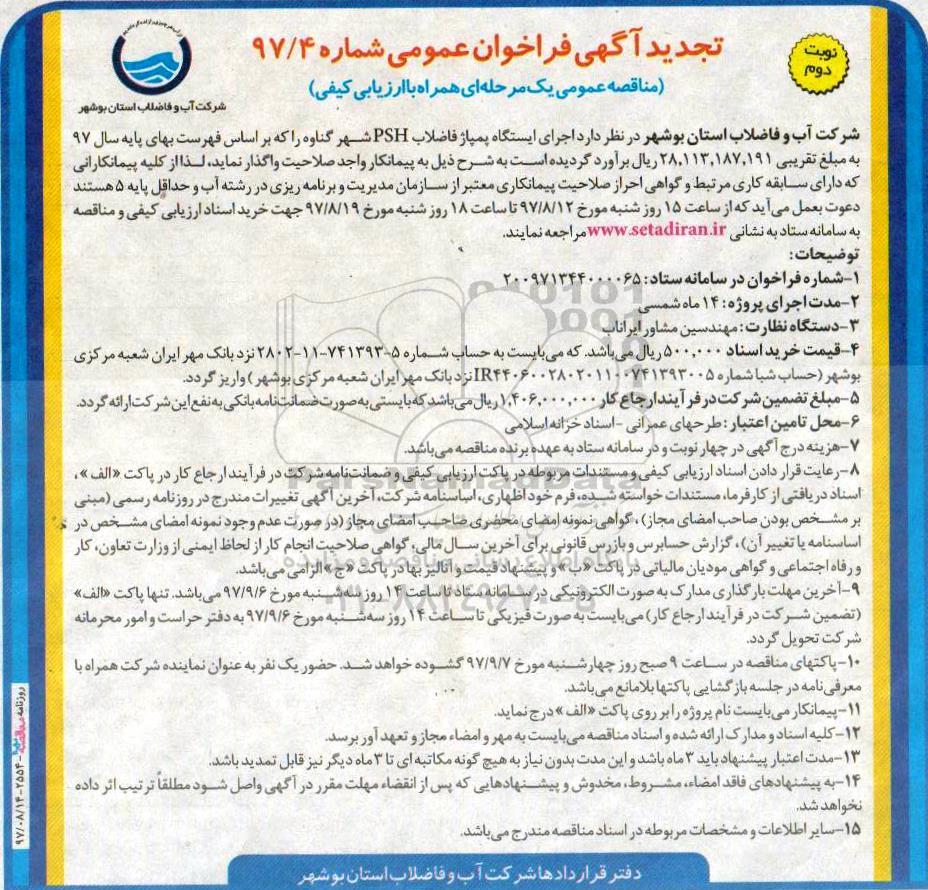 تجدید آگهی فراخوان عمومی شماره ۹۷/۴
(مناقصه عمومی یک مرحله‌ای همراه با ارزیابی کیفی)
نوبت
دوم
شرکت آب و فاضلاب استان بوشهر
شرکت آب و فاضلاب استان بوشهر در نظر دارد اجرای ایستگاه پمپاژ فاضلاب PSH شهر گناوه را که بر اساس فهرست بهای پایه سال ۹۷
به مبلغ تقریبی ۲۸,۱۱۳,۱۸۷,۱۹۱ ریال برآورد گردیده است به شرح ذیل به پیمانکار واجد صلاحیت واگذار نماید، لذا از کلیه پیمانکارانی
که دارای سابقه کاری مرتبط و گواهی احراز صلاحیت پیمانکاری معتبر از سازمان مدیریت و برنامه ریزی در رشته آب و حداقل پایه ۵ هستند
دعوت بعمل می‌آید که از ساعت ۱۵ روز شنبه مورخ ۹۷/۸/۱۲ تا ساعت ۱۸ روز شنبه مورخ ۹۷/۸/۱۹ جهت خرید اسناد ارزیابی کیفی و مناقصه
به سامانه ستاد به نشانی www.setadiran.ir مراجعه نمایند.
توضیحات:
۱-شماره فراخوان در سامانه ستاد: ۲۰۰۹۷۱۳۴۴۰۰۰۰۶۵
۲-مدت اجرای پروژه: ۱۴ ماه شمسی
۳-دستگاه نظارت: مهندسین مشاور ایراناب
۴-قیمت خرید اسناد ۵۰۰,۰۰۰ ریال می‌باشد. که می‌بایست به حساب شماره ۵-۷۴۱۳۹۳-۱۱-۲۸۰۲ نزد بانک مهر ایران شعبه مرکزی
بوشهر (حساب شبا شماره IR۴۴۰۶۰۰۲۸۰۲۰۱۱۰۰۷۴۱۳۹۳۰۰۵ نزد بانک مهر ایران شعبه مرکزی بوشهر) واریز گردد.
۵-مبلغ تضمین شرکت در فرآیند ارجاع کار ۱,۴۰۶,۰۰۰,۰۰۰ ریال می‌باشد که بایستی به صورت ضمانت‌نامه بانکی به نفع این شرکت ارائه گردد.
۶-محل تامین اعتبار: طرحهای عمرانی -اسناد خزانه اسلامی
۷-هزینه درج آگهی در چهار نوبت و در سامانه ستاد به عهده برنده مناقصه می‌باشد.
۸-رعایت قرار دادن اسناد ارزیابی کیفی و مستندات مربوطه در پاکت ارزیابی کیفی و ضمانت‌نامه شرکت در فرآیند ارجاع کار در پاکت «الف»،
اسناد دریافتی از کارفرما، مستندات خواسته شده، فرم خود اظهاری، اساسنامه شرکت، آخرین آگهی تغییرات مندرج در روزنامه رسمی (مبنی
بر مشخص بودن صاحب امضای مجاز)، گواهی نمونه امضای محضری صاحب امضای مجاز (در صورت عدم وجود نمونه امضای مشخص در
اساسنامه یا تغییر آن)، گزارش حسابرس و بازرس قانونی برای آخرین سال مالی، گواهی صلاحیت انجام کار از لحاظ ایمنی از وزارت تعاون، کار
و رفاه اجتماعی و گواهی مودیان مالیاتی در پاکت «ب» و پیشنهاد قیمت و آنالیز بها در پاکت «ج» الزامی می‌باشد.
۹-آخرین مهلت بارگذاری مدارک به صورت الکترونیکی در سامانه ستاد تا ساعت ۱۴ روز سه‌شنبه مورخ ۹۷/۹/۶ می‌باشد. تنها پاکت «الف»
(تضمین شرکت در فرآیند ارجاع کار) می‌بایست به صورت فیزیکی تا ساعت ۱۴ روز سه‌شنبه مورخ ۹۷/۹/۶ به دفتر حراست و امور محرمانه
شرکت تحویل گردد.
۱۰-پاکتهای مناقصه در ساعت ۹ صبح روز چهارشنبه مورخ ۹۷/۹/۷ گشوده خواهد شد. حضور یک نفر به عنوان نماینده شرکت همراه با
معرفی‌نامه در جلسه بازگشایی پاکتها بلامانع می‌باشد.
۱۱-پیمانکار می‌بایست نام پروژه را بر روی پاکت «الف» درج نماید.
۱۲-کلیه اسناد و مدارک ارائه شده و اسناد مناقصه می‌بایست به مهر و امضاء مجاز و تعهد آور برسد.
۱۳-مدت اعتبار پیشنهاد باید ۳ ماه باشد و این مدت بدون نیاز به هیچ گونه مکاتبه ای تا ۳ ماه دیگر نیز قابل تمدید باشد.
۱۴-به پیشنهادهای فاقد امضاء، مشروط، مخدوش و پیشنهادهایی که پس از انقضاء مهلت مقرر در آگهی واصل شود مطلقاً ترتیب اثر داده
نخواهد شد.
۱۵-سایر اطلاعات و مشخصات مربوطه در اسناد مناقصه مندرج می‌باشد.
دفتر قراردادها شرکت آب و فاضلاب استان بوشهر
روزنامه مناقصه -۲۵۵۴-۹۷/۰۸/۱۴